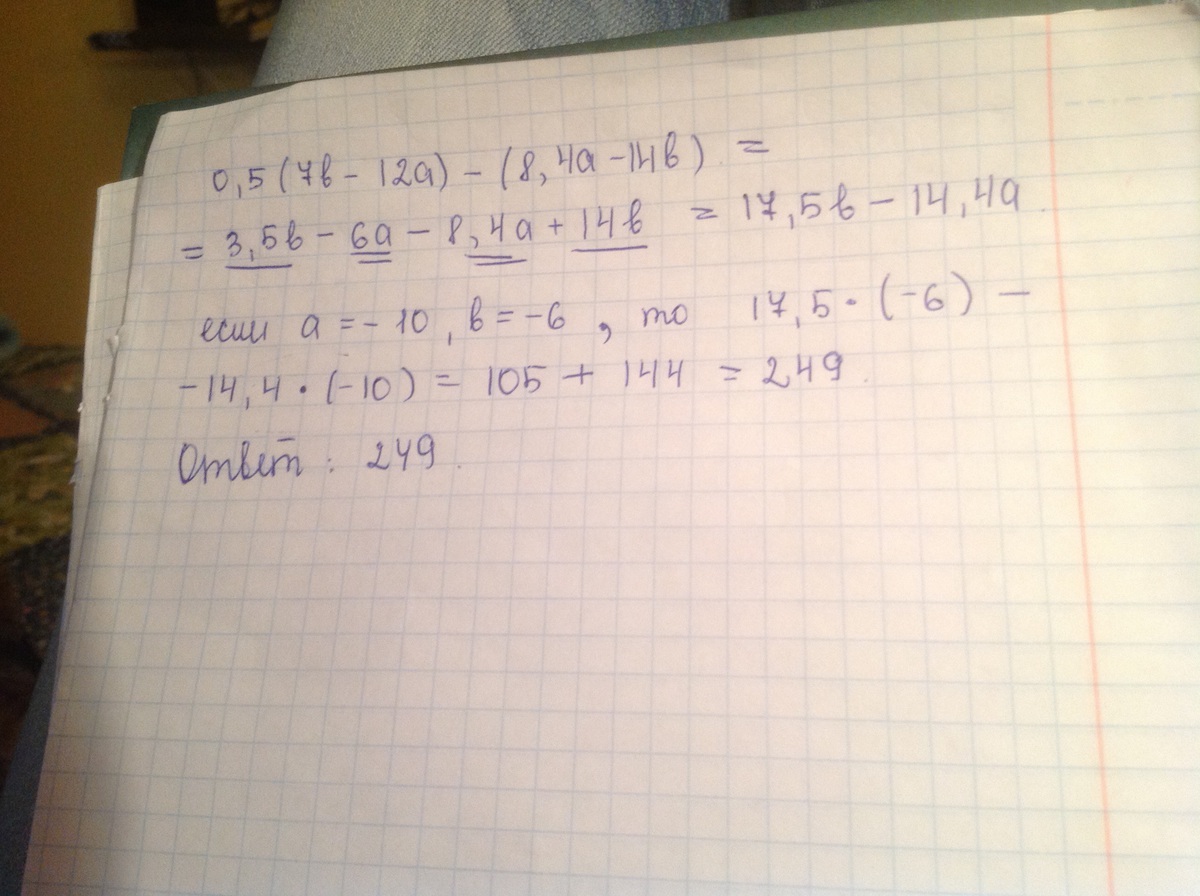 0,5(7в - 12а) - (8,4а - 14в) =
= 3,5в - 6а - 8,4а + 14в = 17,5в - 14,4а.
если а = - 10, в = -6, то 17,5 · (-6) -
- 14,4 · (-10) = 105 + 144 = 249.
Ответ: 249.